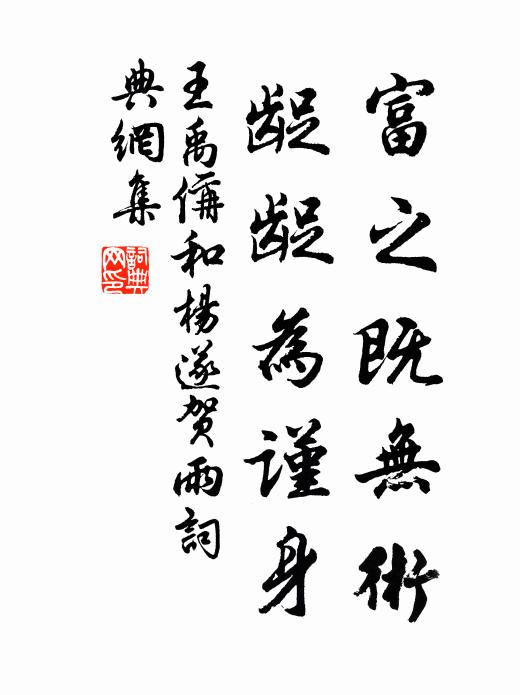 富之既無術
龊龊為謹身
王禹偁和楊遂贺雨詞
典網集
詞典網印